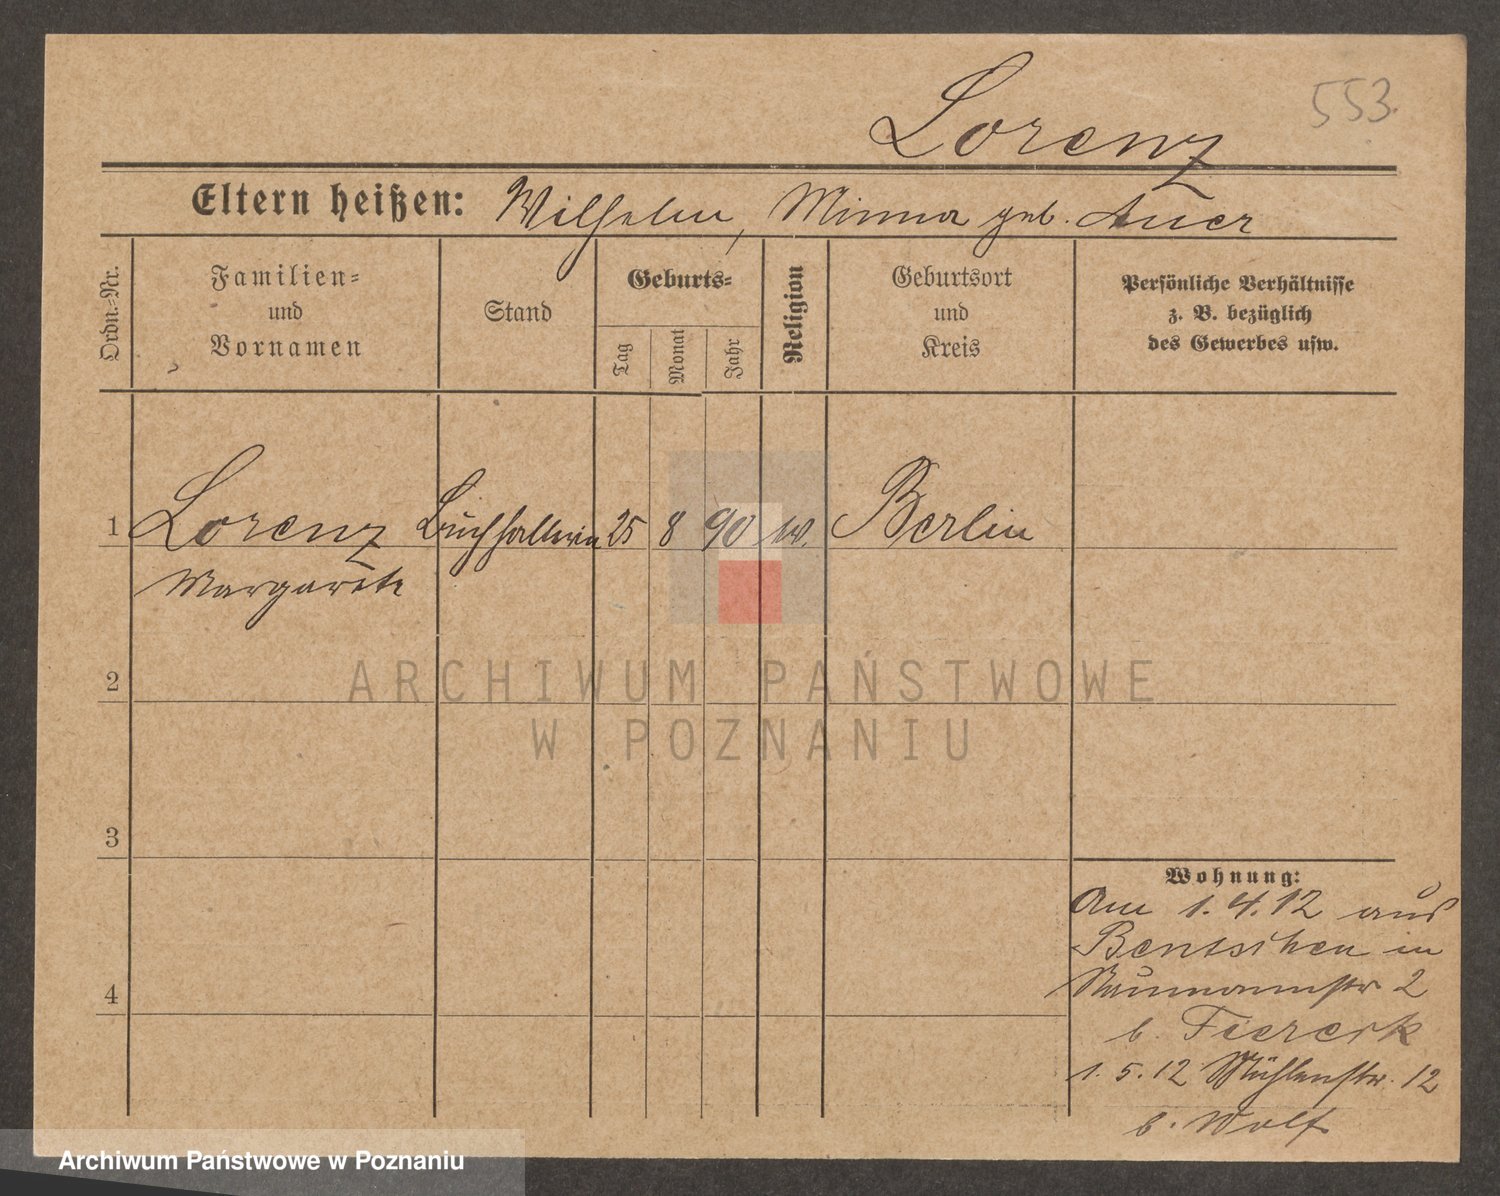 553.
Lorenz
Eltern heißen: Wilhelm, Minna geb. Auer
Ordn.-Nr.
Familien-
und
Vornamen
Stand
Geburts-
Tag
Monat
Jahr
Religion
Geburtsort
und
Kreis
Persönliche Verhältnisse
z. B. bezüglich
des Gewerbes usw.
1 Lorenz Buchhalterin 25 8 90 Berlin
Margarete
2
ARCHIWUM PAŃSTWOWE
W POZNANIU
3
4
Wohnung:
Am 1.4.12 aus
Bentschen in
Naumannstr 2
b.
1.5.12 Mühlenstr. 12
b. Wolf
Archiwum Państwowe w Poznaniu